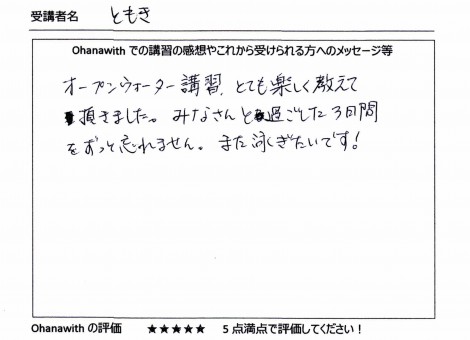 受講者名 ともき
Ohanawith での講習の感想やこれから受けられる方へのメッセージ等
オープンウォーター講習、とても楽しく教えて
頂きました。みなさんと過ごした3日間
をずっと忘れません。また泳ぎたいです!
Ohanawith の評価 ★★★★★ 5点満点で評価してください!